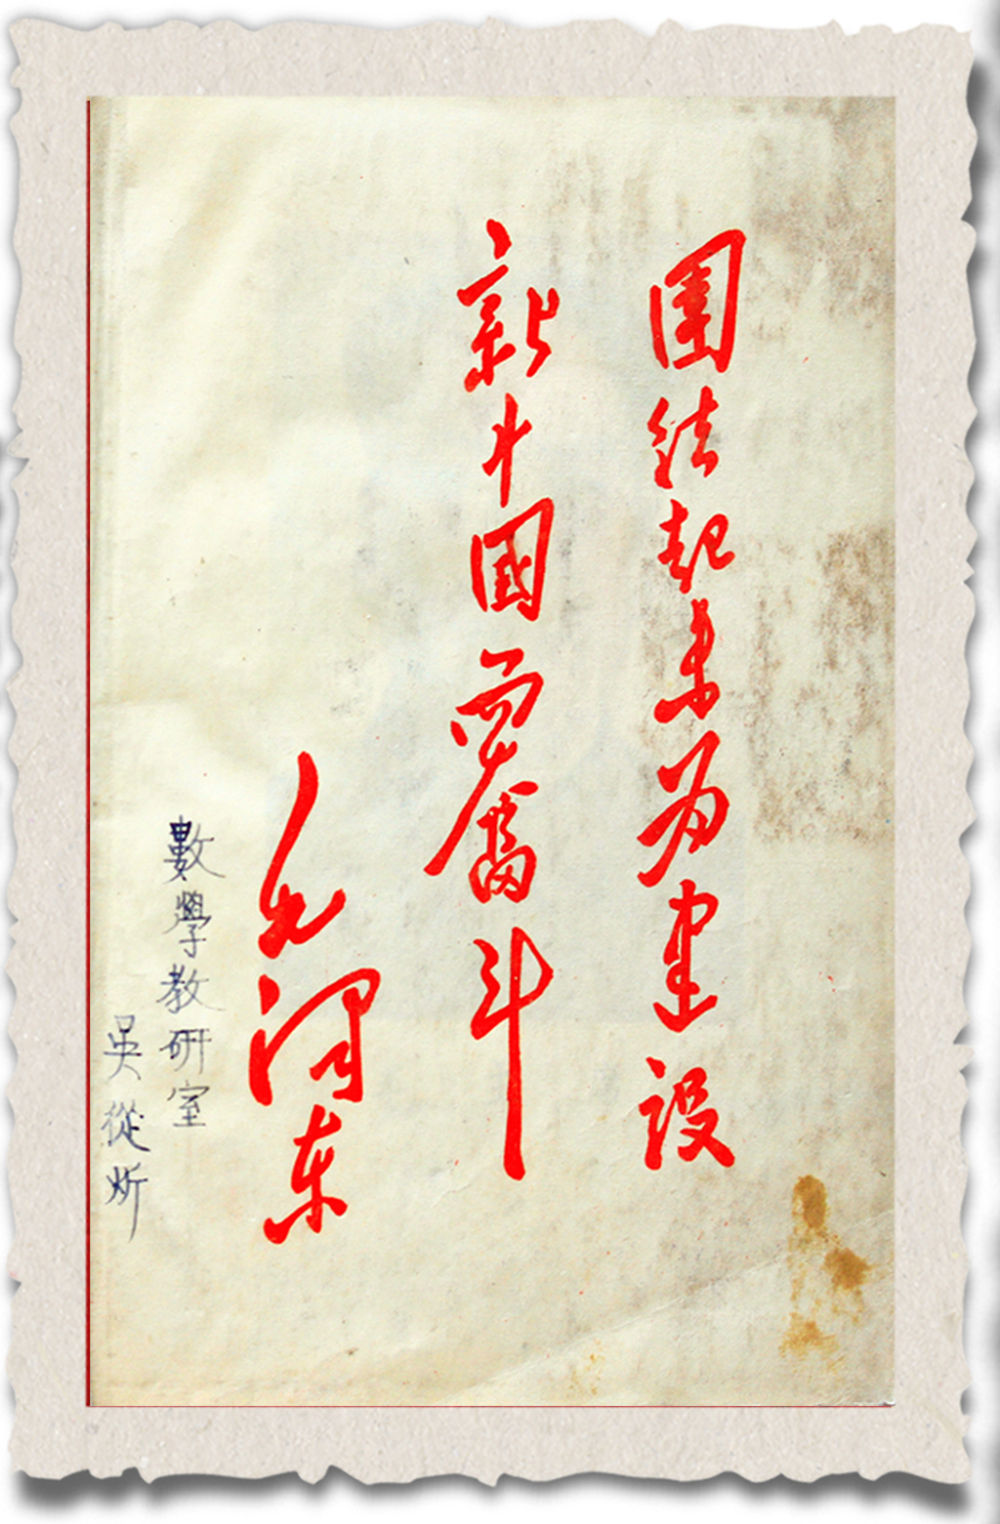 團结起来为建设
新中國而奮斗
毛泽东
數學教研室
吳從炘